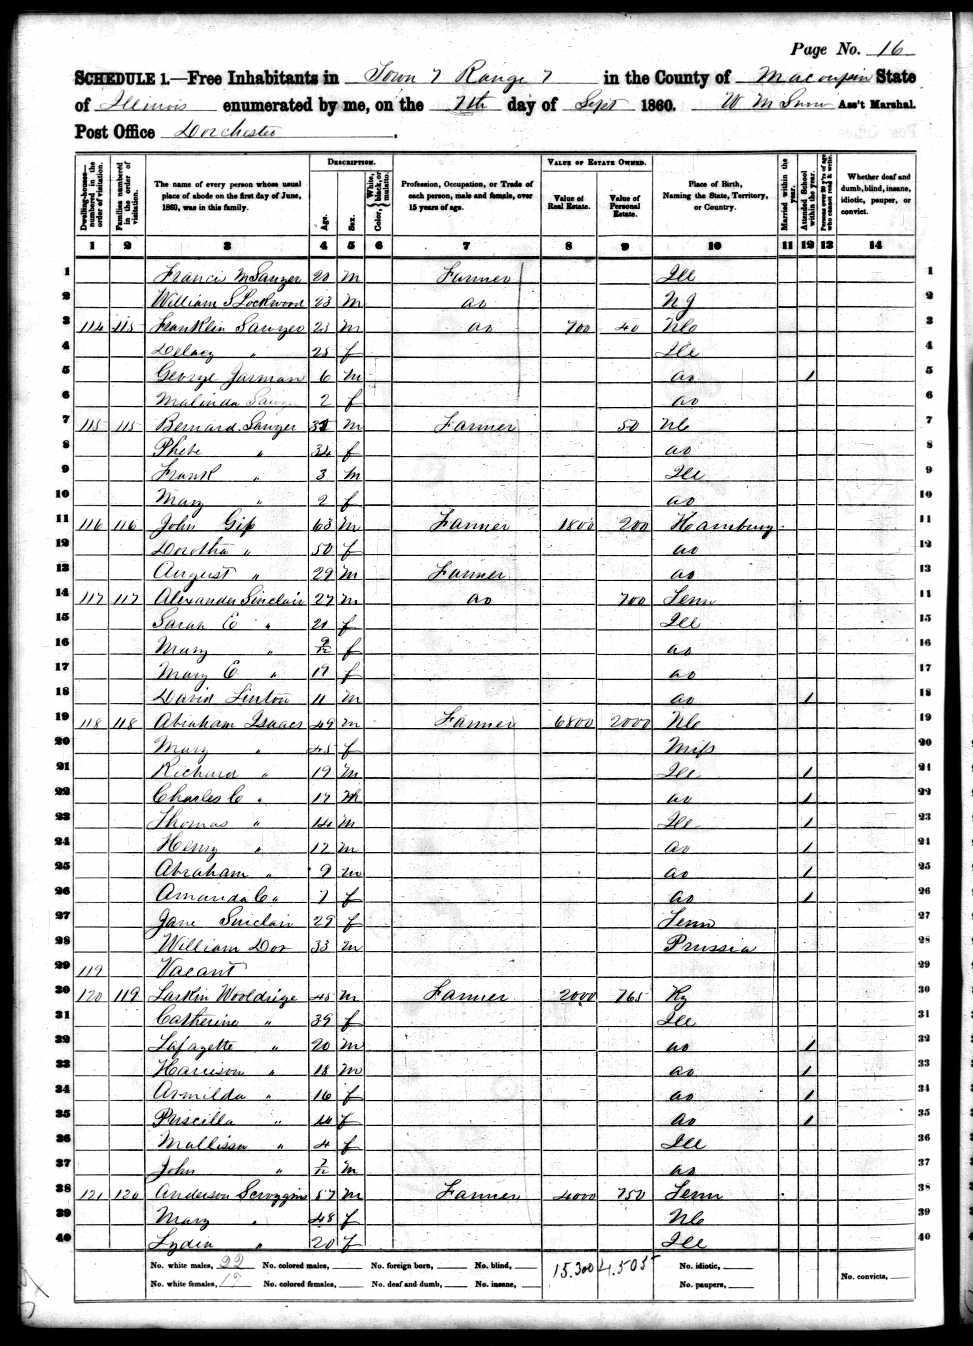 Page No. 16
SCHEDULE 1.—Free Inhabitants in Town 7 Range 7 in the County of Macoupin State
of Illinois enumerated by me, on the 7th day of Sept 1860. W M Snow Ass't Marshal.
Post Office Dorchester.
Dwelling-houses— numbered in the order of visitation. Families numbered in the order of visitation. The name of every person whose usual place of abode on the first day of June, 1860, was in this family. DESCRIPTION. Age. Sex. Color, White, black, or mulatto. Profession, Occupation, or Trade of each person, male and female, over 15 years of age. VALUE OF ESTATE OWNED. Value of Real Estate. Value of Personal Estate. Place of Birth, Naming the State, Territory, or Country. Married within the year. Attended School within the year. Persons over 20 y'rs of age who cannot read & write. Whether deaf and dumb, blind, insane, idiotic, pauper, or convict.
1 2 3 4 5 6 7 8 9 10 11 12 13 14
1 Francis M Sawyer 20 m Farmer Ill 1
2 William S Lockwood 23 m do N J 2
3 114 115 Franklin Sawyer m do 700 40 NC 3
4 " 25 f Ill 4
5 George Jarman 6 m do 1 5
6 Malinda 2 f do 6
7 115 115 Bernard Sawyer m Farmer 50 NC 7
8 Phebe " 34 f do 8
9 Frank " 3 m Ill 9
10 Mary " 2 f do 10
11 116 116 John Giss 63 m Farmer 1800 200 Hamburg 11
12 Dorotha " 50 f do 12
13 August " 29 m Farmer do 13
14 117 117 Alexander Sinclair 27 m do 700 Tenn 14
15 Sarah E " 21 f Ill 15
16 Mary " 9/12 f do 16
17 Mary E " 17 f do 17
18 David Linton 11 m do 1 18
19 118 118 Abraham Isaacs 49 m Farmer 6800 2000 NC 19
20 Mary " 45 f Miss 20
21 Richard " 19 m Ill 1 21
22 Charles C " 17 m do 1 22
23 Thomas " 14 m Ill 1 23
24 Henry " 12 m do 1 24
25 Abraham " 9 m do 1 25
26 Amanda C " 7 f do 1 26
27 Jane Sinclair 29 f Tenn 27
28 William Dor 33 m Prussia 28
29 119 Vacant 29
30 120 119 Larkin Wooldrige 45 m Farmer 2000 765 Ky 30
31 Catherine " 39 f Ill 31
32 Lafayette " 20 m do 1 32
33 Harrison " 18 m do 1 33
34 Armilda " 16 f do 1 34
35 Priscilla " 14 f do 1 35
36 Mallissa " 4 f Ill 36
37 John " m do 37
38 121 120 Anderson Scroggins 57 m Farmer 4000 750 Tenn 38
39 Mary " 48 f NC 39
40 Lydia " 20 f Ill 40
No. white males, 22 No. colored males, No. foreign born, No. blind, 15.300 4.505 No. idiotic,
No. white females, 17 No. colored females, No. deaf and dumb, No. insane, No. paupers, No. convicts,